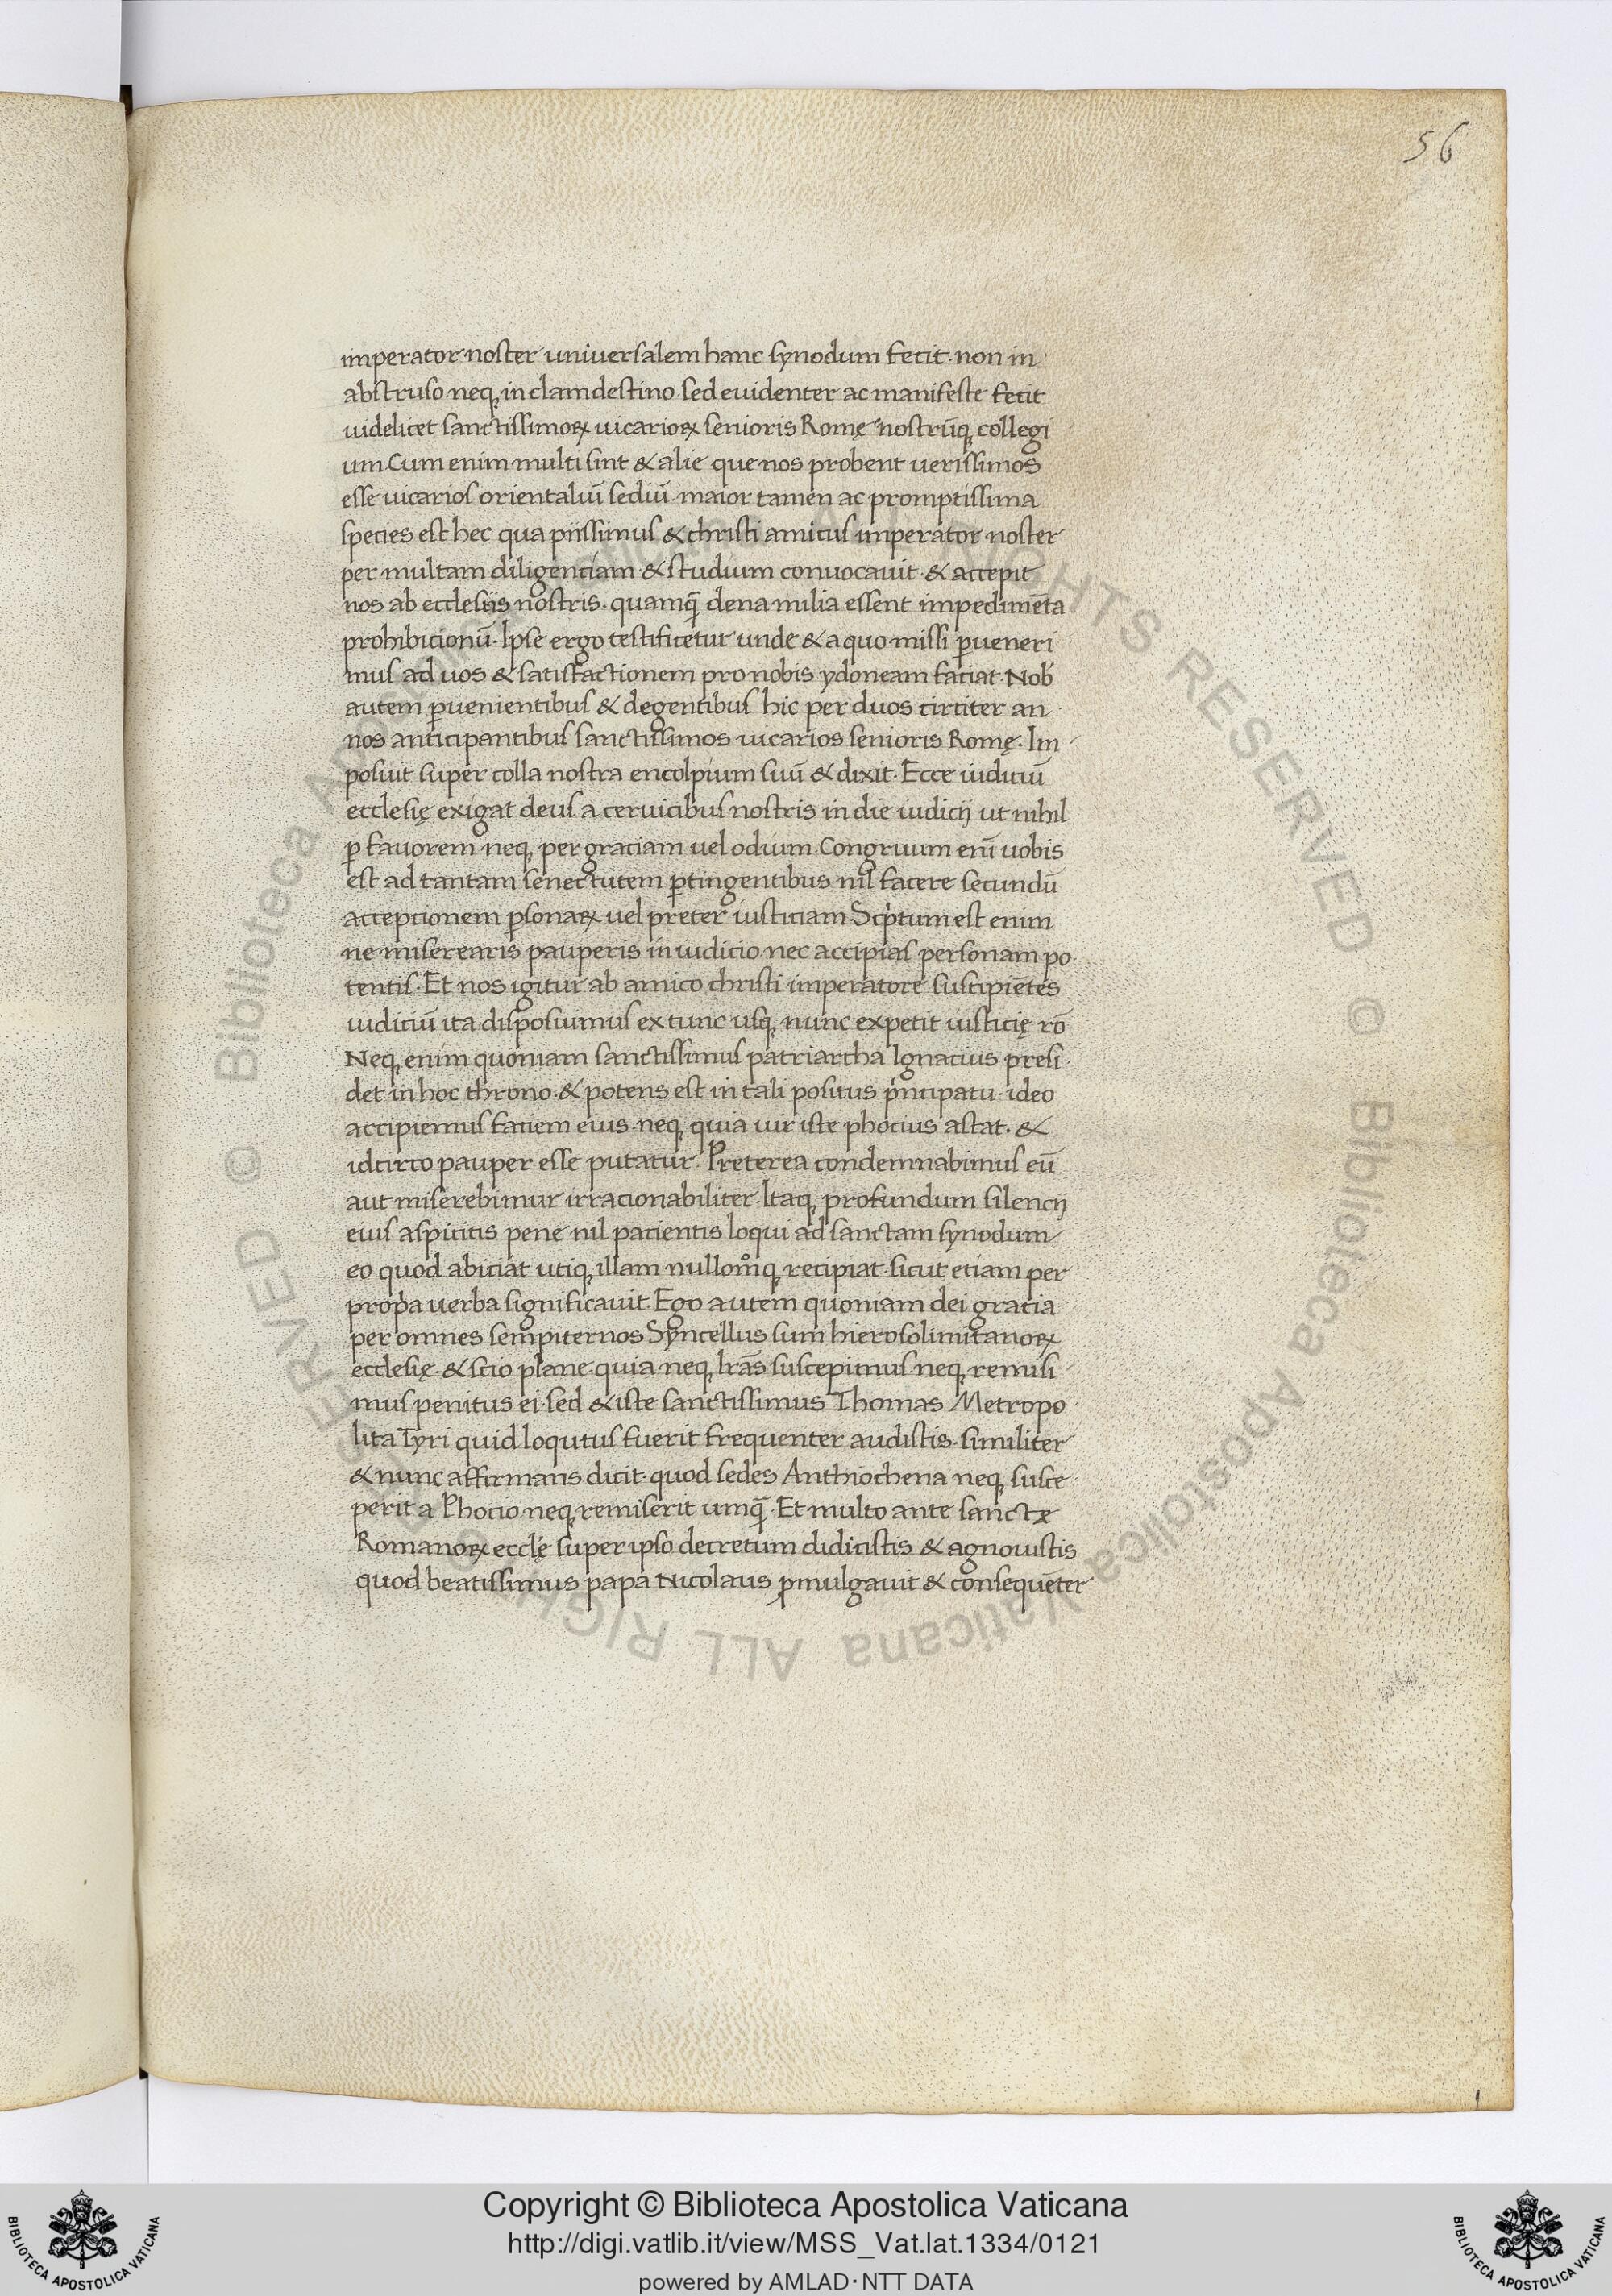 56
imperator noster universalem hanc synodum fecit non in
abstruso neq, in clamdestino sed evidenter ac manifeste fecit
uidelicet sanctissimoꝝ uicarioꝝ senioris Romę nostrūq, collegi
um Cum enim multi sint & alie que nos probent uerissimos
esse uicarios orientaliū sediū maior tamen ac promptissima
species est hec qua piissimus & christi amicus imperator noster
per multam diligenciam & studium convocavit & accepit
nos ab ecclesiis nostris. quamq̄ dena milia essent impedimēta
prohibicionū. Ipse ergo testificetur unde & a quo missi ꝑueneri
mus ad uos & satisfactionem pro nobis ydoneam faciat Nob
autem ꝑuenientibus & degentibus hic per duos circiter an
nos anticipantibus sanctissimos uicarios senioris Romę. Im
posuit super colla nostra encolpium suū & dixit. Ecce iudiciū
ecclesię exigat deus a ceruicibus nostris in die iudicij ut nihil
ꝑ favorem neq, per graciam uel odium Congruum enī uobis
est ad tantam senectutem ꝑtingentibus nil facere secundū
accepcionem ꝑsonaꝝ uel preter iusticiam Scptum est enim
ne miserearis pauperis in iudicio nec accipias personam po
tentis. Et nos igitur ab amico christi imperatore suscipiētes
iudiciū ita disposuimus ex tunc usq, nunc expetit iusticię rō
Neq, enim quoniam sanctissimus patriarcha Ignacius presi
det in hoc throno & potens est in tali positus pncipatu ideo
accipiemus faciem eius neq, quia uir iste phocius astat. &
idcirco pauper esse putatur. Preterea condemnabimus eū
aut miserebimur irracionabiliter Itaq, profundum silencij
eius aspicitis pene nil pacientis loqui ad sanctam synodum
eo quod abiciat utiq, illam nullomͦq, recipiat sicut etiam per
propa uerba significavit Ego autem quoniam dei gracia
per omnes sempiternos Syncellus sum hierosolimitanoꝝ
ecclesię & scio plane quia neq, lrās suscepimus neq, remisi
mus penitus ei sed & iste sanctissimus Thomas Metropo
lita Tyri quid loqutus fuerit frequenter audistis similiter
& nunc affirmans dicit quod sedes Anthiochena neq, susce
perit a Phocio neq, remiserit umq̄. Et multo ante sancte
Romanoꝝ ecclę super ipso decretum didicistis & agnouistis
quod beatissimus papa Nicolaus ꝓmulgauit & consequēter
© Biblioteca Apostolica Vaticana ALL RIGHTS RESERVED
© Biblioteca Apostolica Vaticana ALL RIGHTS RESERVED
Copyright © Biblioteca Apostolica Vaticana
http://digi.vatlib.it/view/MSS_Vat.lat.1334/0121
powered by AMLAD·NTT DATA
BIBLIOTECA APOSTOLICA VATICANA
BIBLIOTECA APOSTOLICA VATICANA